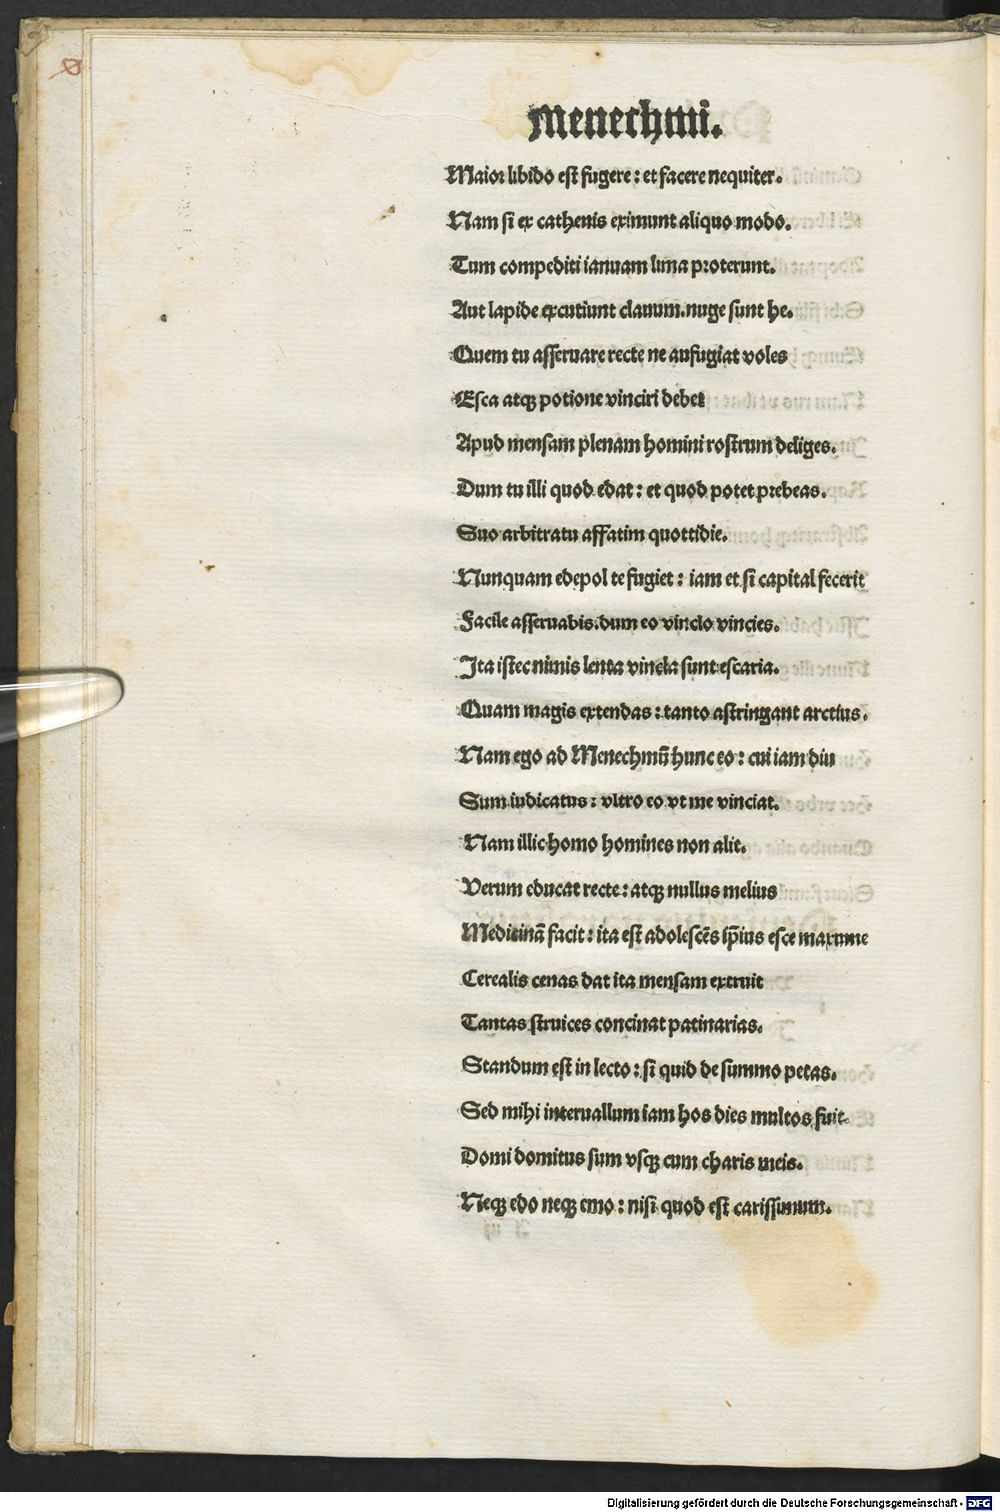 Menechmi.
Maior libido est fugere : et facere nequiter.
Nam si ex cathenis eximunt aliquo modo.
Tum compediti ianuam lima proterunt.
Aut lapide excutiunt clauum. nuge sunt he.
Quem tu asseruare recte ne aufugiat voles
Esca atqꝫ potione vinciri debet
Apud mensam plenam homini rostrum deliges.
Dum tu illi quod edat : et quod potet prebeas.
Suo arbitratu affatim quottidie.
Nunquam edepol te fugiet : iam et si capital fecerit
Facile asseruabis. dum eo vinclo vincies.
Ita istec nimis lenta vincla sunt escaria.
Quam magis extendas : tanto astringant arctius.
Nam ego ad Menechmū hunc eo : cui iam diu
Sum iudicatus : vltro eo vt me vinciat.
Nam illic homo homines non alit.
Verum educat recte : atqꝫ nullus melius
Medicinā facit : ita est adolescēs ip̄ius esce maxume
Cerealis cenas dat ita mensam extruit
Tantas struices concinat patinarias.
Standum est in lecto : si quid de summo petas.
Sed mihi interuallum iam hos dies multos fuit.
Domi domitus sum vsqꝫ cum charis meis.
Neqꝫ edo neqꝫ emo : nisi quod est carissimum.
Digitalisierung gefördert durch die Deutsche Forschungsgemeinschaft - DFG